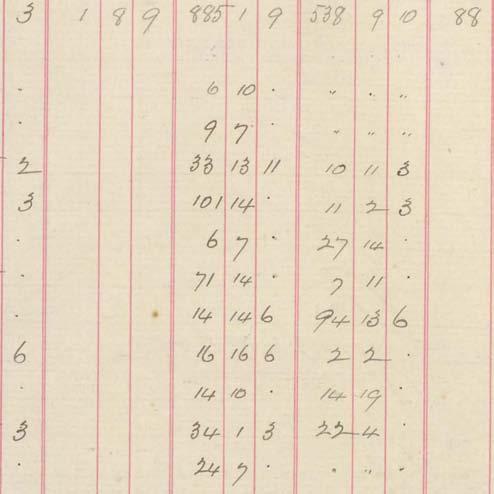 3 1 8 9 885 1 9 538 9 10 88
. 6 10 . " . "
. 9 7 . " " "
2 33 13 11 10 11 3
3 101 14 . 11 2 3
. 6 7 . 27 14 .
. 71 14 . 7 11 .
. 14 14 6 94 13 6
6 16 16 6 2 2 .
. 14 10 . 14 19 .
3 34 1 3 22 4 .
. 24 7 . . " .